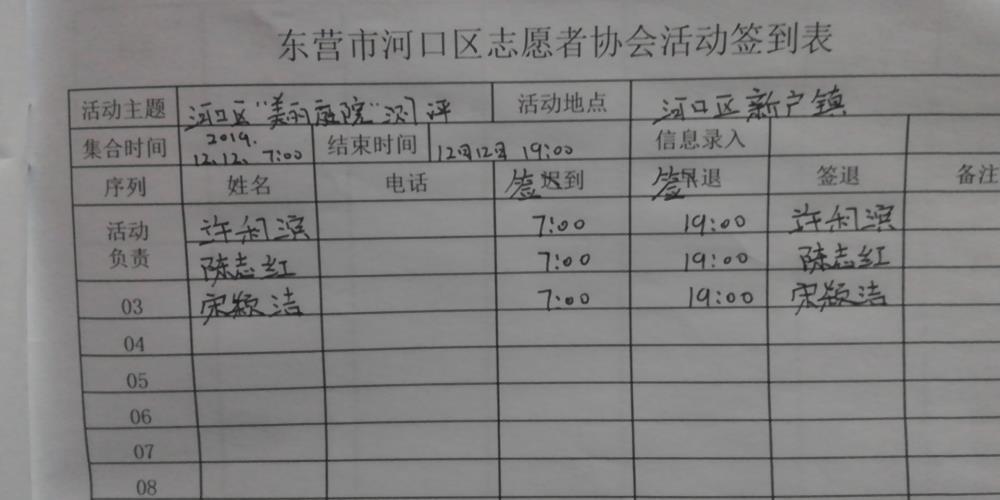 东营市河口区志愿者协会活动签到表
活动主题 河口区"美丽庭院"测评 活动地点 河口区新户镇
集合时间 2019.12.12. 7:00 结束时间 12月12日 19:00 信息录入
序列 姓名 电话 签到 签退 签退 备注
活动负责 许利滨 7:00 19:00 许利滨
陈志红 7:00 19:00 陈志红
03 宋颖洁 7:00 19:00 宋颖洁
04
05
06
07
08